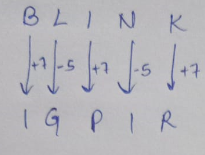 B L I N K
+7 -5 +7 -5 +7
I G P I R